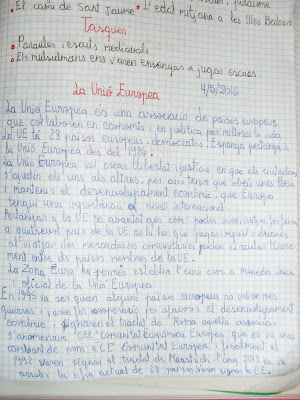 El camí de Sant Jaume • L'edat mitjana a les Illes Balears
Tasques
• Paraules i escuts medievals
• Els musulmans ens varen ensenyar a jugar escacs
La Unió Europea 4/5/2016
La Unió Europea és una associació de països europeus
que col·laboren en economia i en política per millorar la vida
La UE té 28 països europeus, democràtics. Espanya pertany a
la Unió Europea des del 1986.
La Unió Europea vol crear llibertat i justícia, en que els ciutadans
s'ajudin els uns als altres, per això tenen que obrir unes lleis
i mantenir el desenvolupament econòmic, que Europa
tengui una importància a nivell internacional.
a qualsevol país de la UE no hi ha que pagar impost a duanes
al viatjar i les mercaderies comunitàries poden circular lliure
ment entre els països membres de la UE.
La Zona Euro ha permès establir l'euro com a moneda única
i oficial de la Unió Europea.
En 1945 va ser quan alguns països europeus no volen més
guerres, i varen fer cooperació per afavorir el desenvolupament
econòmic, i signaren el tractat de Roma aquella associació
s'anomenava "CEE" Comunitat Econòmica Europea que es va anar
canviant de nom a "CE" Comunitat Europea i finalment el
1992 varen signar el tractat de Maastrich. L'any 2013 es va
a la xifra actual de 28 països varen signar la CE.